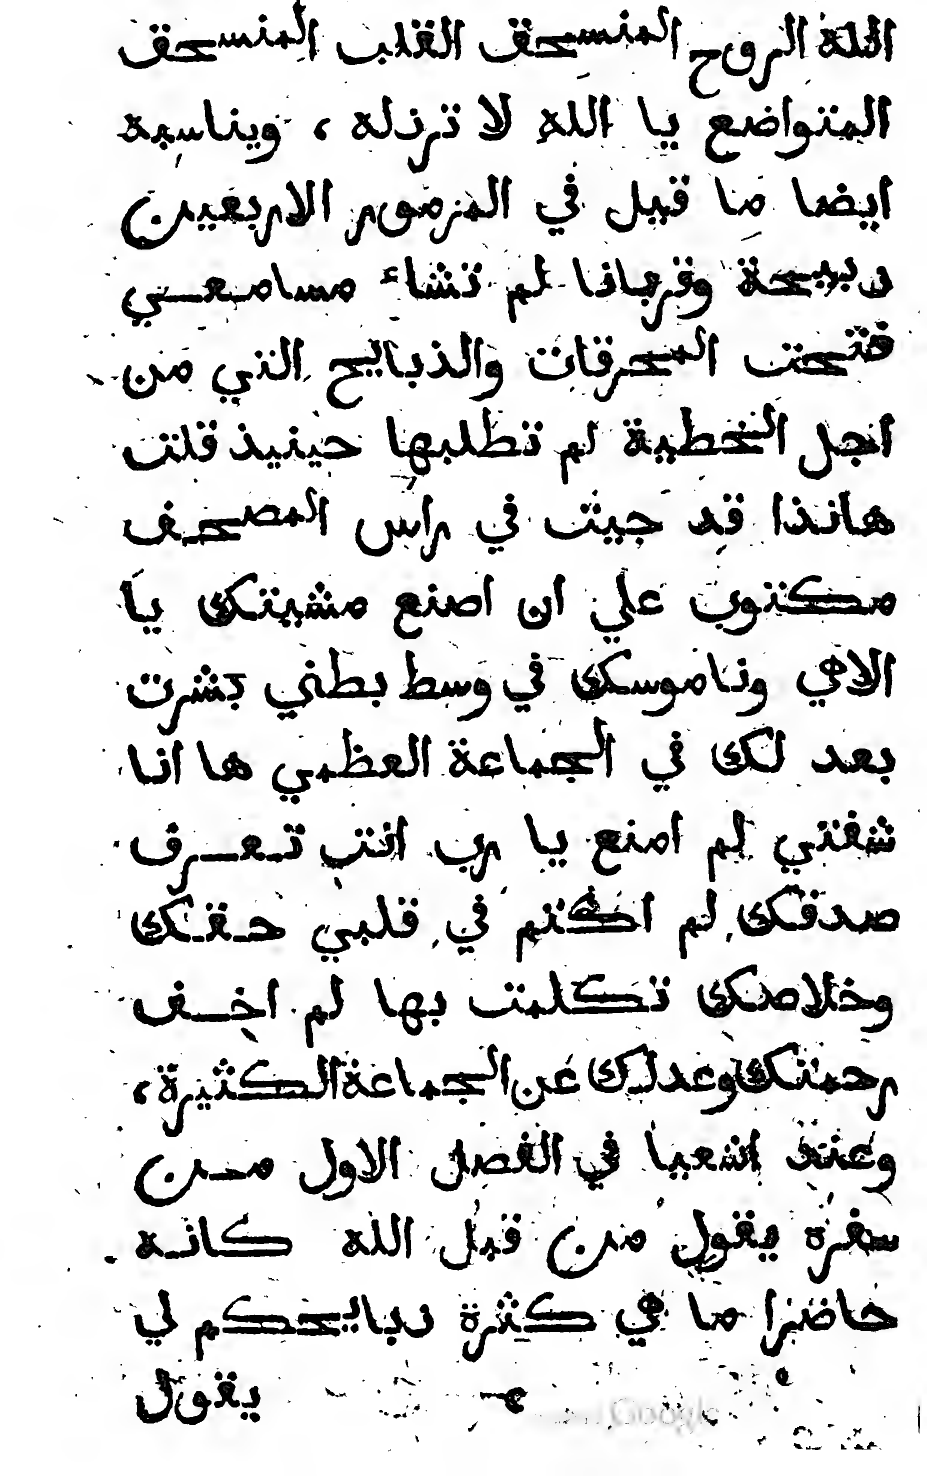 اللة الروح المنسحق القلب المنسحق
المتواضع يا اللة لا ترذله ، ويناسبه
ايضا ما قيل في المزمور الاربعين
ذبيحة وقربانا لم تشاء مسامعي
فتحت المحرقات والذبايح التي من
اجل الخطية لم تطلبها حينيذ قلت
هانذا قد جيت في راس المصحف
مكتوب علي ان اصنع مشيتك يا
الاهي وناموسك في وسط بطني بشرت
بعد لك في الجماعة العظمي ها انا
شفتي لم امنع يا رب انت تعرف
صدقك لم اكتم في قلبي حقك
وخلاصك تكلمت بها لم اخف
رحمتك وعدلك عن الجماعة الكثيرة ،
وعند اشعيا في الفصل الاول من
سفره يقول من قبل الله كانه
حاضرا ما هي كثرة ذبايحكم لي
يقول
Google